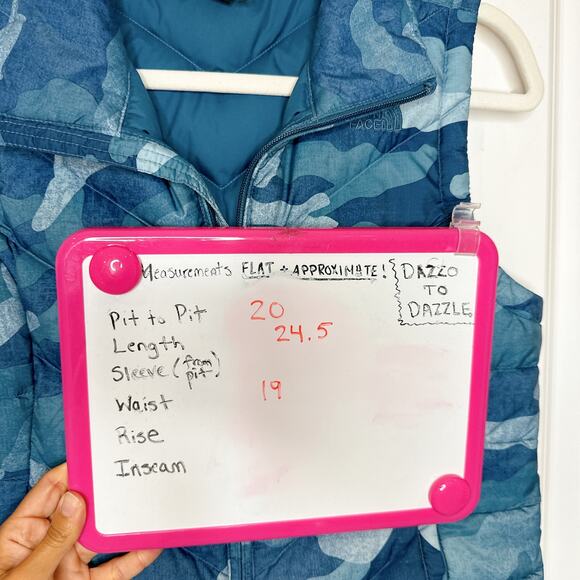 FACE
Measurements FLAT + APPROXIMATE!
DAZZO
TO
DAZZLE
Pit to Pit 20
Length 24.5
Sleeve (from pit)
Waist 19
Rise
Inseam